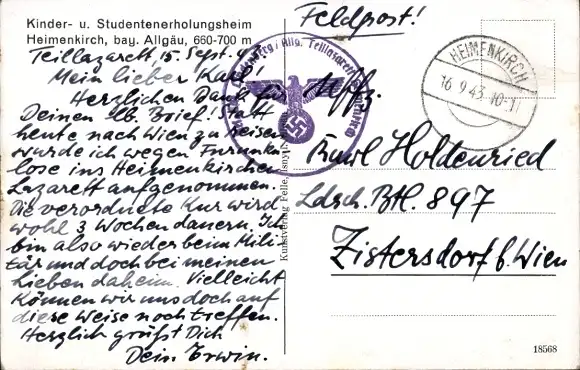 Kinder- u. Studentenerholungsheim
Heimenkirch, bay. Allgäu, 660-700 m
Teillazarett 15. Sept. 43
Mein lieber Karl!
Herzlichen Dank für
Deinen lb. Brief! Statt
heute nach Wien zu reisen
wurde ich wegen Furunku-
lose ins Heimenkircher
Lazarett aufgenommen.
Die verordnete Kur wird
wohl 3 Wochen dauern. Ich
bin also wieder beim Mili-
tär und doch bei meinen
Lieben daheim. Vielleicht
können wir uns doch auf
diese Weise noch treffen.
Herzlich grüßt Dich
Dein Erwin.
Kunstverlag Felle, Isny
Feldpost!
Allg. Teillazarett
HEIMENKIRCH
16.9.43.10-11
Uffz.
Karl Holdenried
Ldsch. Btl. 897
Zistersdorf b. Wien
18568